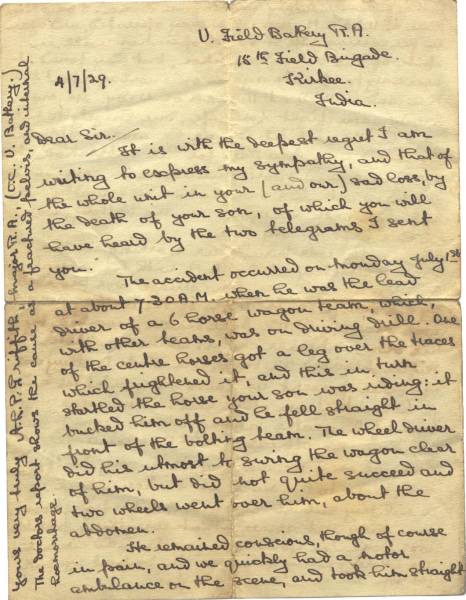 U. Field Battery R.A.
15th Field Brigade.
Kirkee.
India.
4/7/29.
Dear Sir.
It is with the deepest regret I am
writing to express my sympathy, and that of
the whole unit in your (and our) sad loss, by
the death of your son, of which you will
have heard by the two telegrams I sent
you.
The accident occurred on Monday July 1st
at about 7.30 A.M. when he was the lead
driver of a 6 horse wagon team, which,
with other teams, was on driving drill. One
of the centre horses got a leg over the traces
which frightened it, and this in turn
startled the horse your son was riding: it
bucked him off and he fell straight in
front of the bolting team. The wheel driver
did his utmost to swing the wagon clear
of him, but did not quite succeed and
two wheels went over him, about the
abdomen.
He remained conscious, though of course
in pain, and we quickly had a motor
ambulance on the scene, and took him straight
Yours very truly A.L.P. Griffith Major R.A. (O.C. U. Battery.)
The doctors report shows the cause as a fractured pelvis, and internal
haemorrhage.